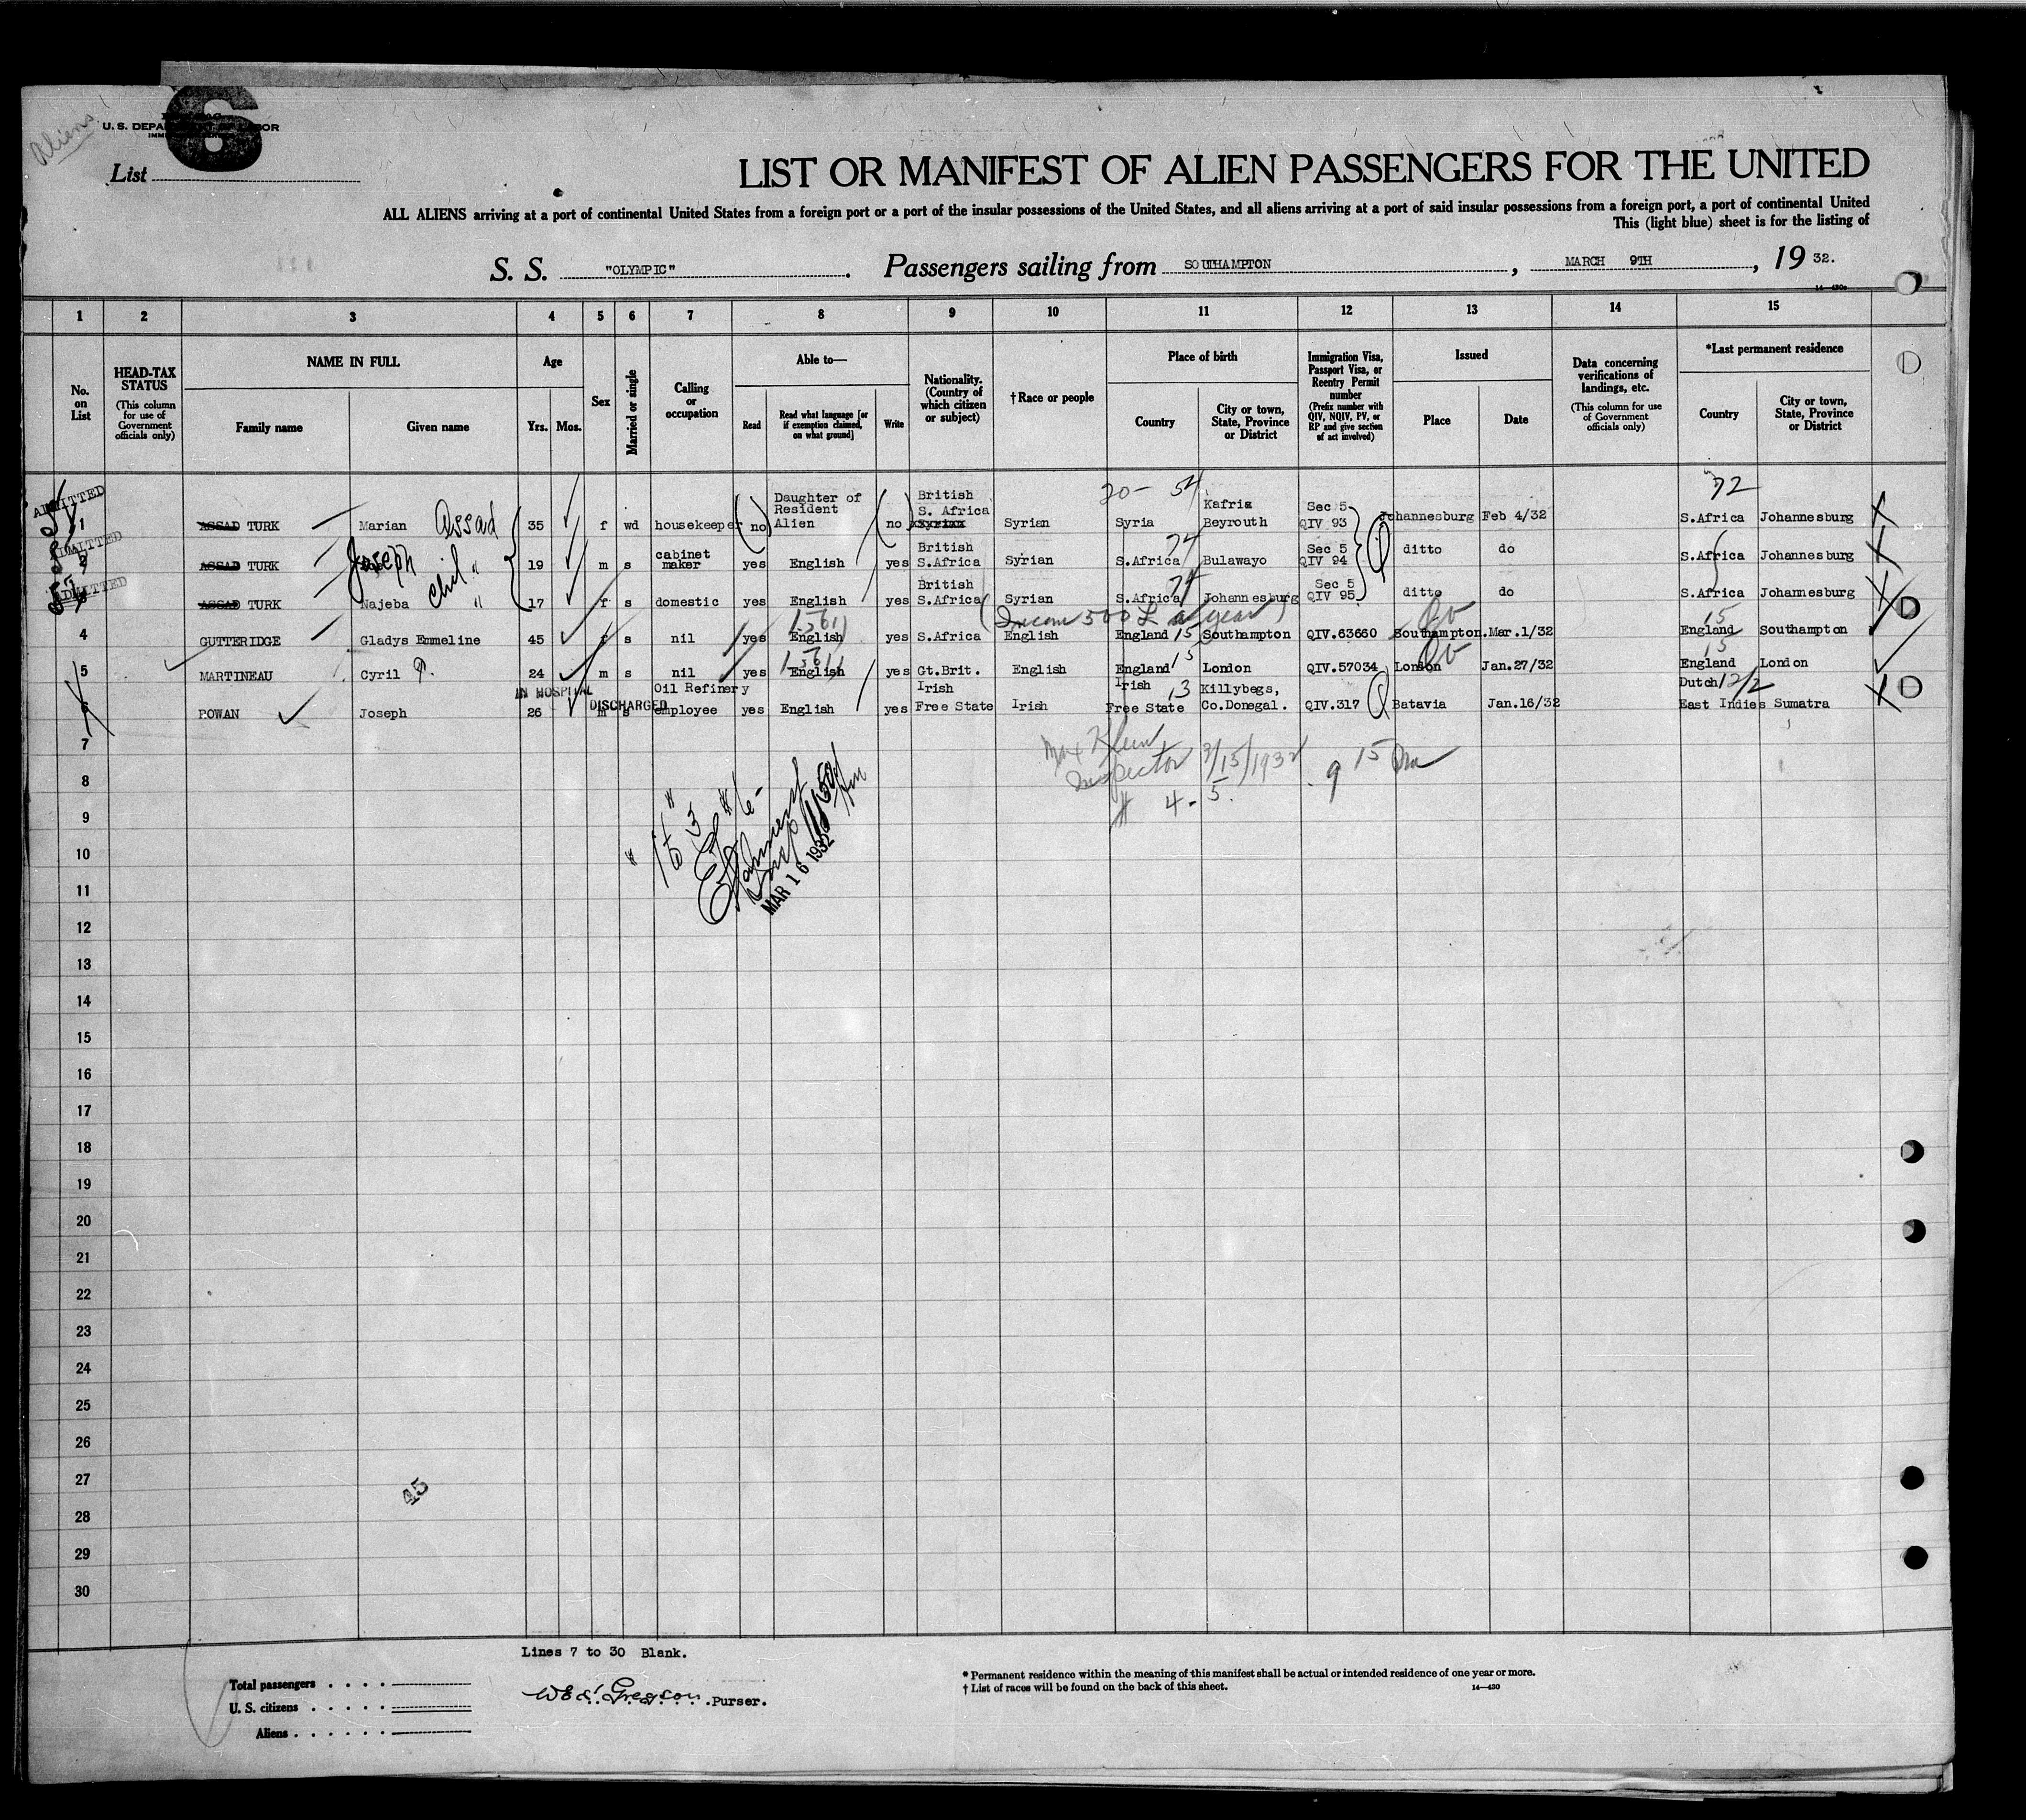 Aliens
6
U. S. DEPA
List
LIST OR MANIFEST OF ALIEN PASSENGERS FOR THE UNITED
ALL ALIENS arriving at a port of continental United States from a foreign port or a port of the insular possessions of the United States, and all aliens arriving at a port of said insular possessions from a foreign port, a port of continental United
This (light blue) sheet is for the listing of
S. S. "OLYMPIC". Passengers sailing from SOUTHAMPTON, MARCH 9TH, 19 32.
14—430
1 2 3 4 5 6 7 8 9 10 11 12 13 14 15
No. on List
HEAD-TAX STATUS
(This column for use of Government officials only)
NAME IN FULL
Family name Given name
Age
Yrs. Mos.
Sex
Married or single
Calling or occupation
Able to—
Read
Read what language [or if exemption claimed, on what ground]
Write
Nationality. (Country of which citizen or subject)
†Race or people
Place of birth
Country
City or town, State, Province or District
Immigration Visa, Passport Visa, or Reentry Permit number
(Prefix number with QIV, NQIV, PV, or RP and give section of act involved)
Issued
Place Date
Data concerning verifications of landings, etc.
(This column for use of Government officials only)
*Last permanent residence
Country
City or town, State, Province or District
20- 54 72
ADMITTED 1 ASSAD TURK Marian Assad 35 f wd housekeeper no Daughter of Resident Alien no British S. Africa Syrian Syrian Syria Kafria Beyrouth Sec 5 QIV 93 Johannesburg Feb 4/32 S.Africa Johannesburg
ADMITTED 2 ASSAD TURK Joseph " 19 m s cabinet maker yes English yes British S.Africa Syrian S.Africa 74 Bulawayo Sec 5 QIV 94 ditto do S.Africa Johannesburg
ADMITTED 3 ASSAD TURK Najeba chil " 17 f s domestic yes English yes British S.Africa Syrian S.Africa 74 Johannesburg Sec 5 QIV 95 ditto do S.Africa Johannesburg
(Income 500 £ a year)
4 GUTTERIDGE Gladys Emmeline 45 f s nil yes English yes S.Africa English England 15 Southampton QIV.63660 Southampton. Mar.1/32 England 15 Southampton
5 MARTINEAU Cyril 24 m s nil yes English yes Gt.Brit. English England 15 London QIV.57034 London Jan.27/32 England 15 London
IN HOSPITAL DISCHARGED
6 POWAN Joseph 26 m s Oil Refinery employee yes English yes Irish Free State Irish Irish Free State 13 Killybegs, Co.Donegal. QIV.317 Batavia Jan.16/32 Dutch East Indies Sumatra
7
Max Klein
Inspector 3/15/1932 9 15 Am
8
# 4 - 5.
9
10
MAR 16 1932
11
12
13
14
15
16
17
18
19
20
21
22
23
24
25
26
27
45
28
29
30
Lines 7 to 30 Blank.
Total passengers
U. S. citizens
Aliens
Gregson. Purser.
* Permanent residence within the meaning of this manifest shall be actual or intended residence of one year or more.
† List of races will be found on the back of this sheet.
14—430